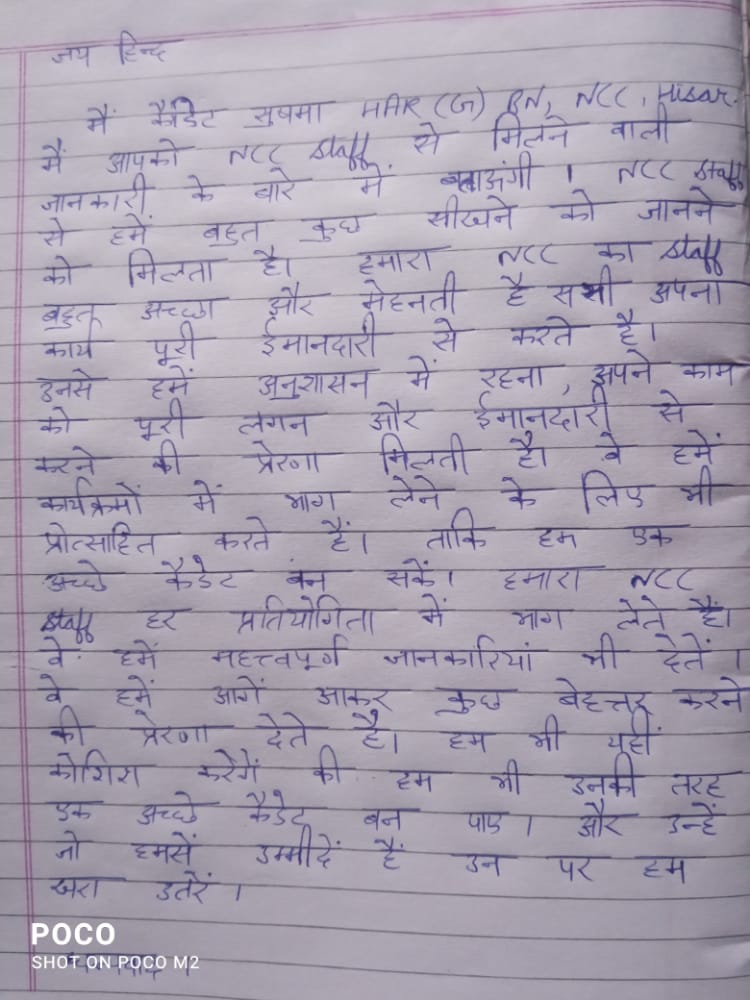 जय हिन्द
मैं कैडेट सुषमा HAR (G) BN, NCC, Hisar.
मैं आपको NCC staff से मिलने वाली
जानकारी के बारे में बताऊंगी । NCC staff
से हमें बहुत कुछ सीखने को जानने
को मिलता है। हमारा NCC का staff
बहुत अच्छा और मेहनती है सभी अपना
कार्य पूरी ईमानदारी से करते है।
उनसे हमें अनुशासन में रहना, अपने काम
को पूरी लगन और ईमानदारी से
करने की प्रेरणा मिलती है। वे हमें
कार्यक्रमों में भाग लेने के लिए भी
प्रोत्साहित करते हैं। ताकि हम एक
अच्छे कैडेट बन सकें। हमारा NCC
staff हर प्रतियोगिता में भाग लेते हैं।
वे हमें महत्त्वपूर्ण जानकारियां भी देतें ।
वे हमें आगें आकर कुछ बेहत्तर करने
की प्रेरणा देते है। हम भी यहीं
कोशिश करेगें की हम भी उनकी तरह
एक अच्छे कैडेट बन पाए। और उन्हें
जो हमसें उम्मीदें हैं उन पर हम
खरा उतरें ।
POCO
SHOT ON POCO M2